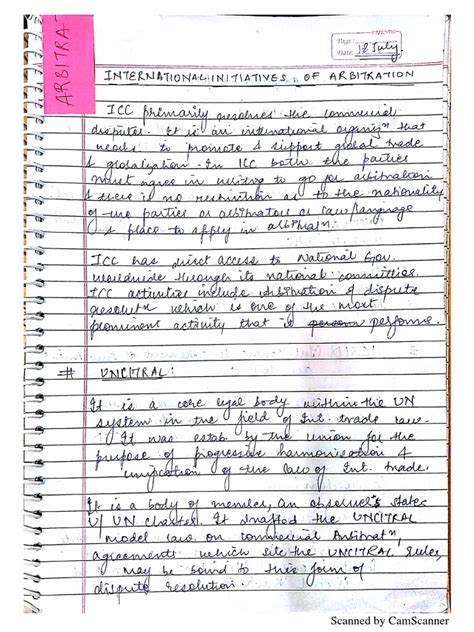 ARBITRA-
Page:
Date: 18 July
INTERNATIONAL INITIATIVES OF ARBITRATION
ICC primarily resolves the commercial
disputes. It is an international organizn that
works to promote & support global trade
& globalization. In ICC both the parties
must agree in writing to go for arbitration
& there is no restriction as to the nationality
of the parties or arbitrators or law/language
& place to apply in arbitratn.
ICC has direct access to National Gov.
worldwide through its national committees.
ICC activities include Arbitration & dispute
resolutn which is one of the most
prominent activity that it performs.
# UNCITRAL:
It is a core legal body within the UN
system in the field of Int. trade law.
It was estab by the union for the
purpose of progressive harmonisation &
unification of the law of Int. trade.
It is a body of member, an observer's states
U/ UN charter. It drafted the UNCITRAL
model law on commercial Arbitratn,
agreements which site the UNCITRAL Rules,
may be bound to this form of
dispute resolution.
Scanned by CamScanner